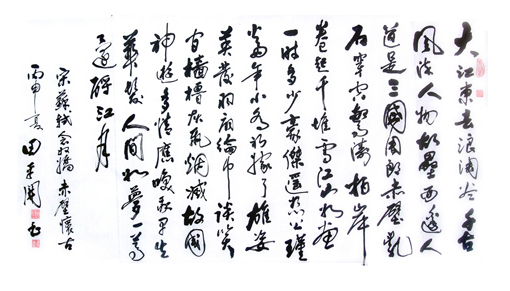 大江東去浪淘盡千古
風流人物故壘西邊人
道是三國周郎赤壁亂
石穿空驚濤拍岸
卷起千堆雪江山如畫
一時多少豪傑遙想公瑾
當年小喬初嫁了雄姿
英發羽扇綸巾談笑
間檣櫓灰飛煙滅故國
神遊多情應笑我早生
華髮人間如夢一尊
還酹江月
宋蘇軾念奴嬌赤壁懷古
丙申夏田